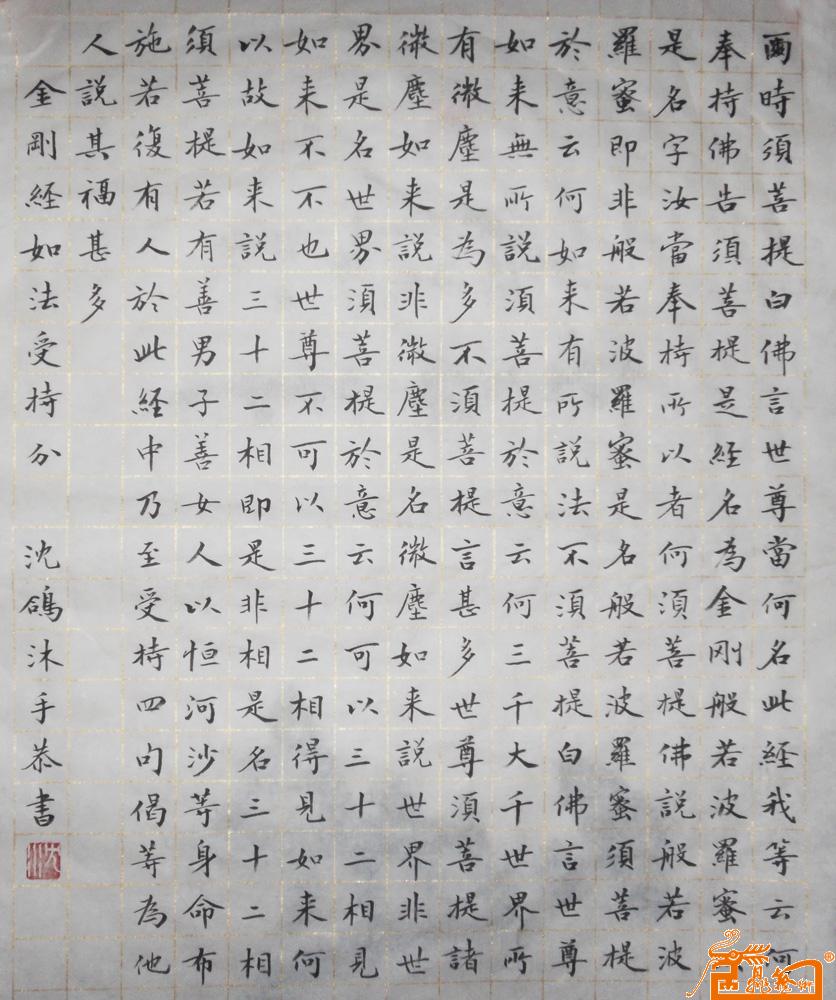 爾時須菩提白佛言世尊當何名此経我等云何
奉持佛告須菩提是経名為金刚般若波羅蜜
是名字汝當奉持所以者何須菩提佛說般若波
羅蜜即非般若波羅蜜是名般若波羅蜜須菩提
於意云何如来有所說法不須菩提白佛言世尊
如来無所說須菩提於意云何三千大千世界所
有微塵是為多不須菩提言甚多世尊須菩提諸
微塵如来說非微塵是名微塵如来說世界非世
界是名世界須菩提於意云何可以三十二相見
如来不不也世尊不可以三十二相得見如来何
以故如来說三十二相即是非相是名三十二相
須菩提若有善男子善女人以恒河沙等身命布
施若復有人於此経中乃至受持四句偈等為他
人說其福甚多
金剛経如法受持分 沈鴿沐手恭書